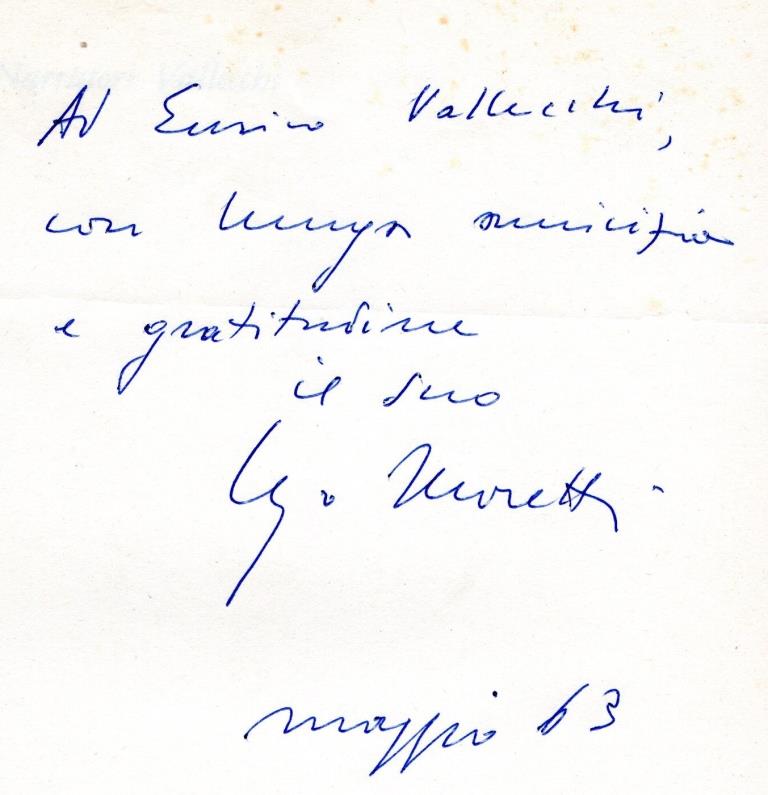 Narratori Vallecchi
Ad Enrico Vallecchi,
con lunga amicizia
e gratitudine
il suo
Ugo Moretti
maggio 63